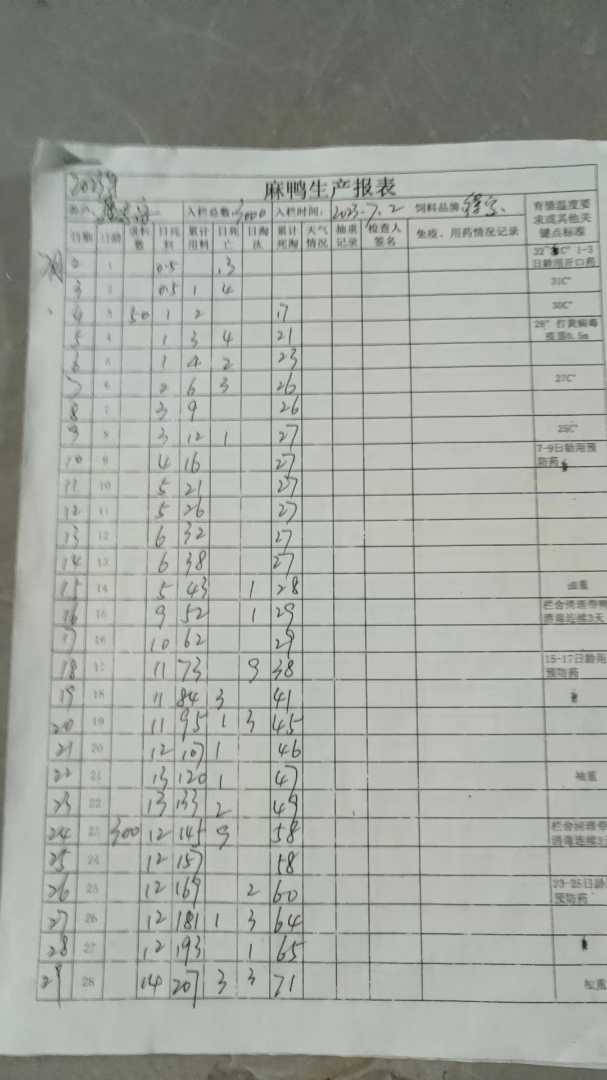 麻鸭生产报表
入栏总数: 3000 入栏时间: 2023.7.2 饲料品牌
育雏温度要求或其他关键点标准
日期 日龄 领料数 日耗料 累计用料 日死亡 日淘汰 累计死淘 天气情况 抽重记录 检查人签名 免疫、用药情况记录
2 1 0.5 3 1-3日龄用开口药
3 2 0.5 1 4 31C°
4 3 50 1 2 17 30C°
5 4 1 3 4 21
6 5 1 4 2 23
7 6 2 6 3 26 27C°
8 7 3 9 26
9 8 3 12 1 27 25C°
10 9 4 16 27 7-9日龄用预防药
11 10 5 21 27
12 11 5 26 27
13 12 6 32 27
14 13 6 38 27
15 14 5 43 1 28
16 15 9 52 1 29 消毒连续3天
17 16 10 62 29
18 17 11 73 9 38 15-17日龄用预防药
19 18 11 84 3 41
20 19 11 95 1 3 45
21 20 12 107 1 46
22 21 13 120 1 47 抽重
23 22 13 133 2 49
24 23 300 12 145 9 58 消毒连续3
25 24 12 157 58
26 25 12 169 2 60 23-25日龄 预防药
27 26 12 181 1 3 64
28 27 12 193 1 65
29 28 14 207 3 3 71 抽重